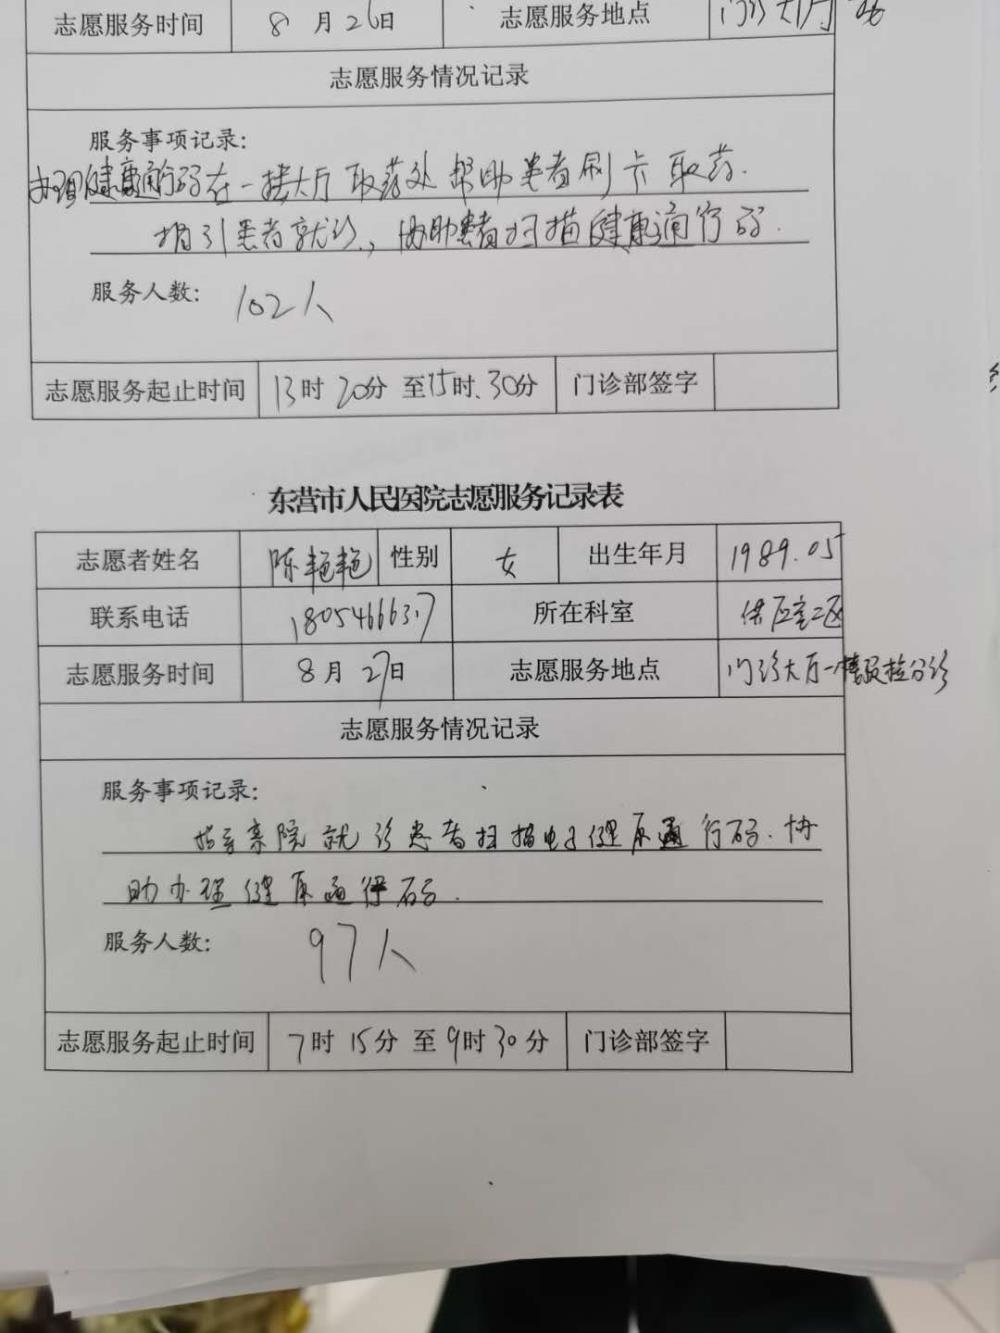 志愿服务时间 8月26日 志愿服务地点 门诊大厅
志愿服务情况记录
服务事项记录:
办理健康通行码在一楼大厅取药处帮助患者刷卡取药.
指引患者就诊,协助患者扫描健康通行码.
服务人数: 102人
志愿服务起止时间 13时20分至15时30分 门诊部签字
东营市人民医院志愿服务记录表
志愿者姓名 陈艳艳 性别 女 出生年月 1989.05
联系电话 所在科室 供应室二区
志愿服务时间 8月27日 志愿服务地点 门诊大厅一楼
志愿服务情况记录
服务事项记录:
指导来院就诊患者扫描电子健康通行码.协
助办理健康通行码.
服务人数: 97人
志愿服务起止时间 7时15分至9时30分 门诊部签字